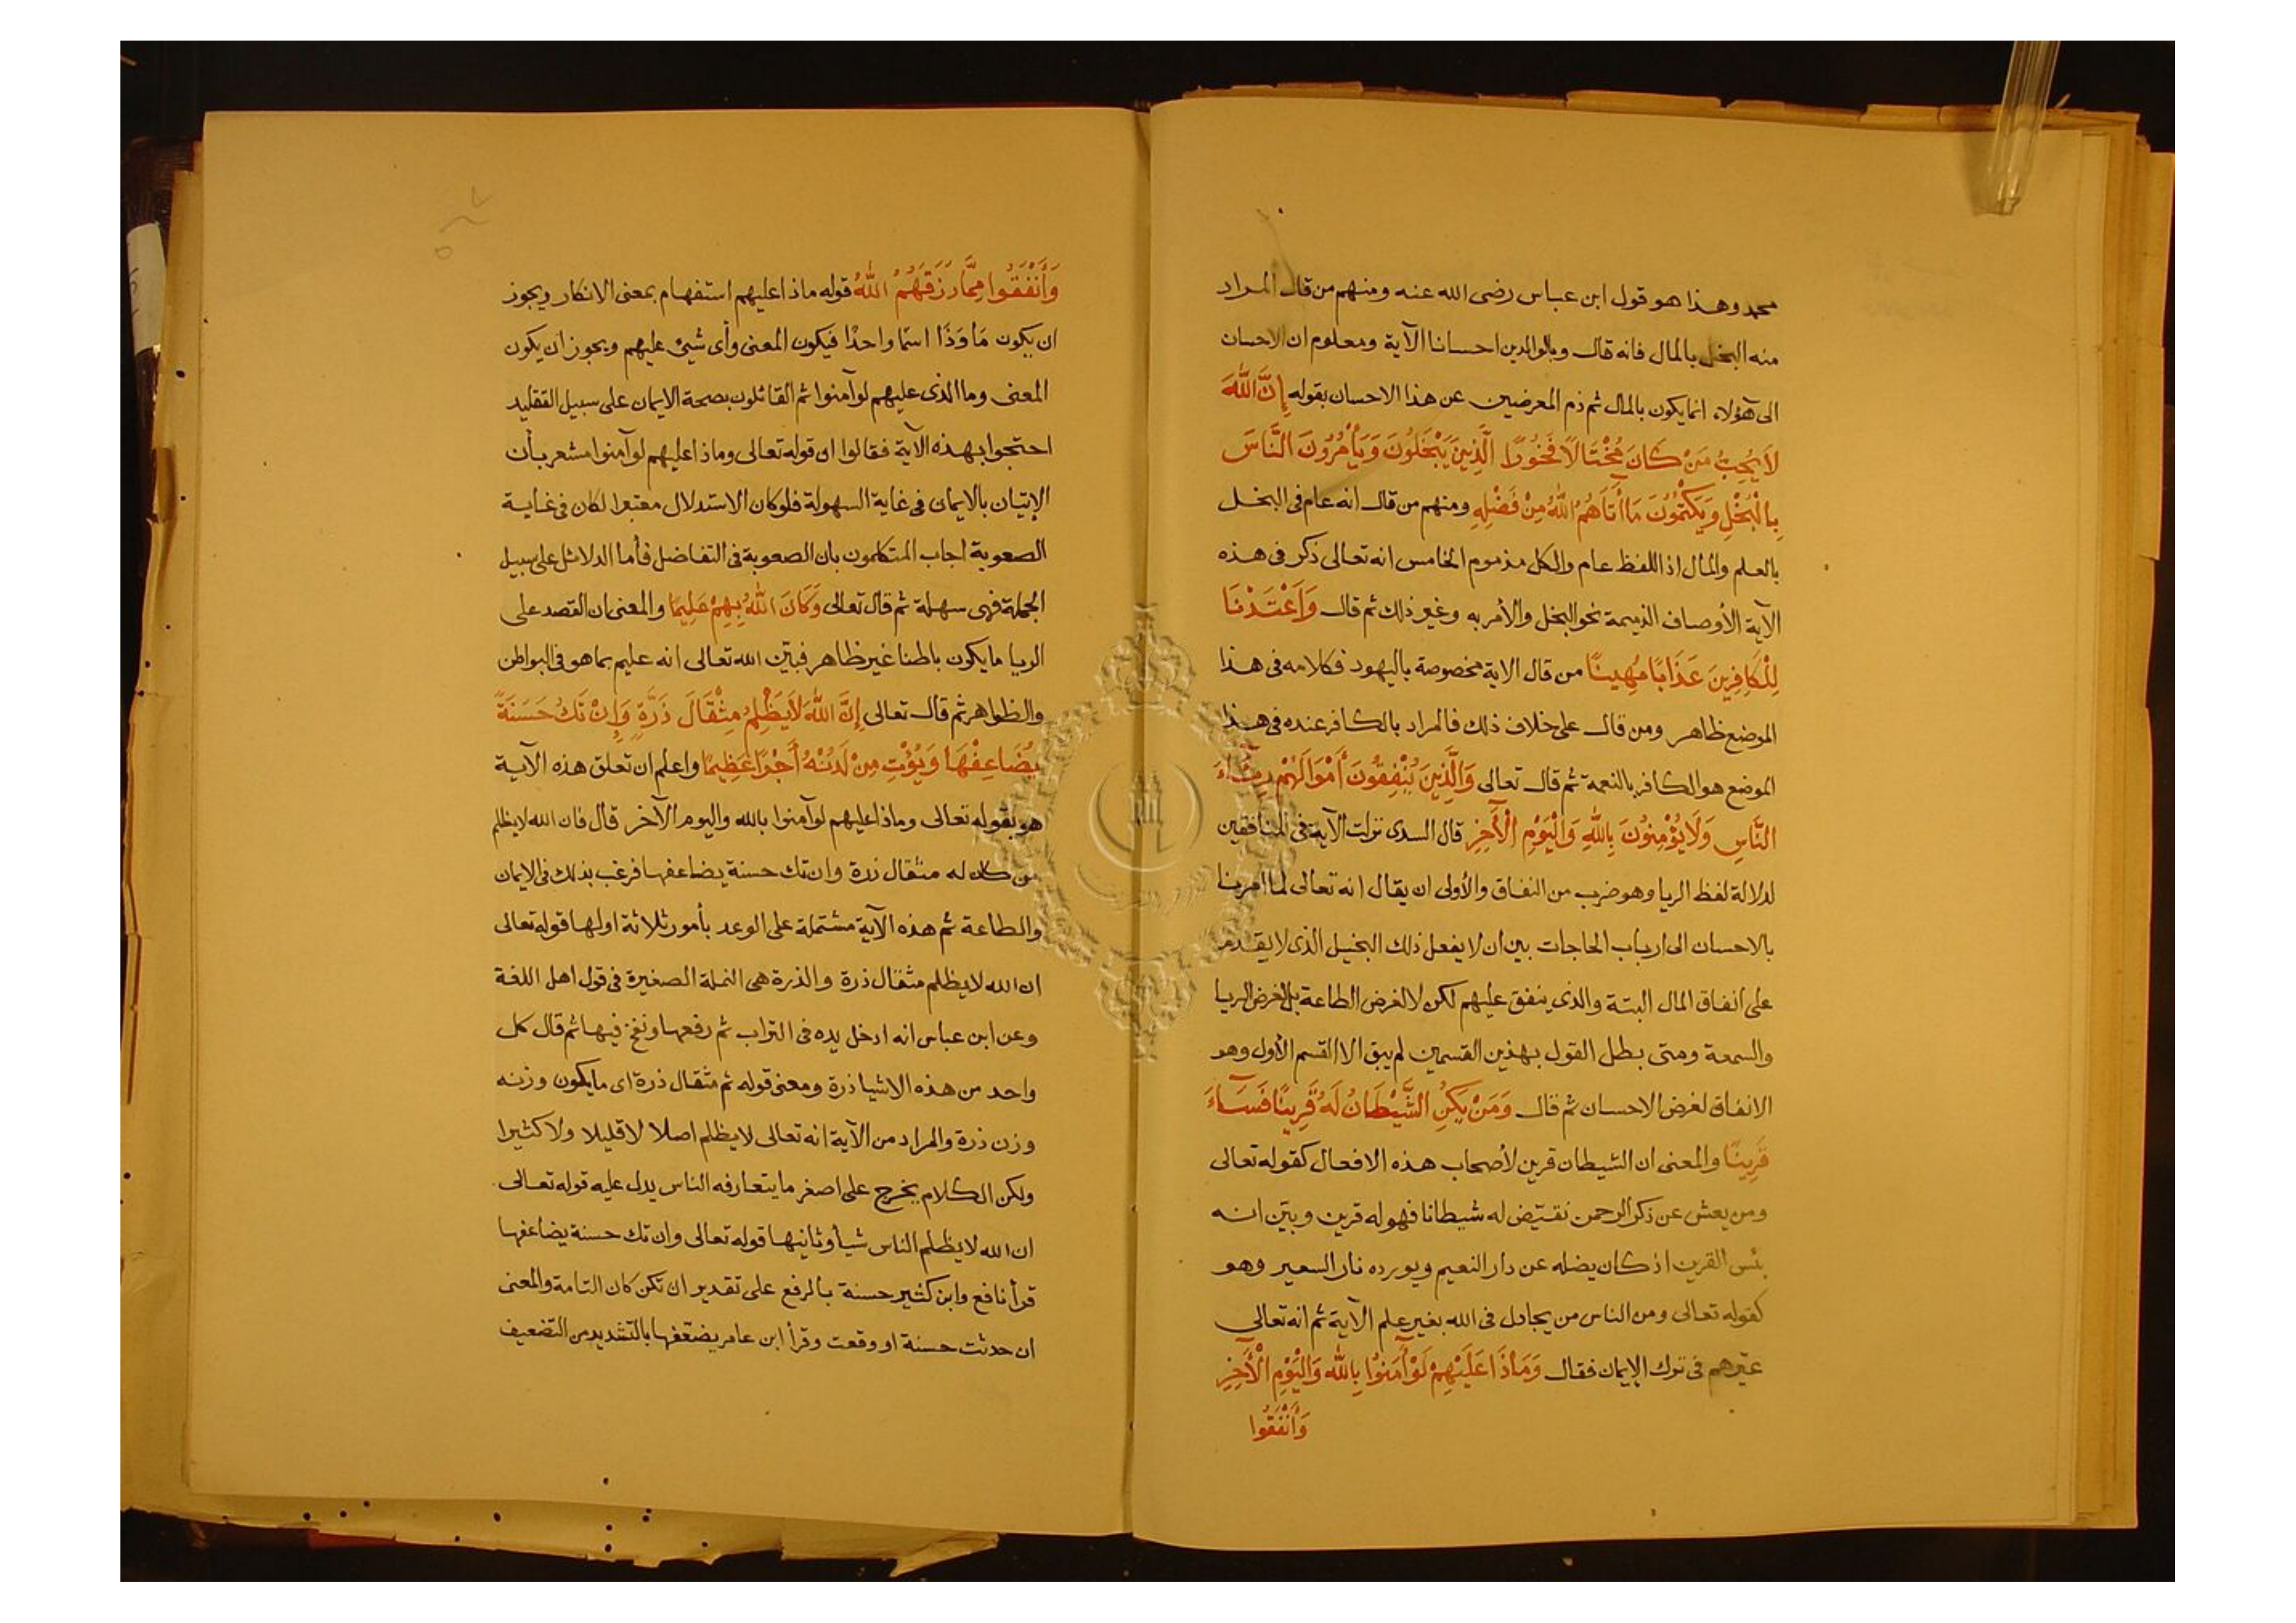 محمد وهذا هو قول ابن عباس رضى الله عنه ومنهم من قال المراد
منه البخل بالمال فانه قال وبالوالدين احسانا الآية ومعلوم ان الاحسان
الى هؤلاء انما يكون بالمال ثم ذم المعرضين عن هذا الاحسان بقوله إِنَّ اللهَ
لاَ يُحِبُّ مَنْ كَانَ مُخْتَالاً فَخُورًا الَّذِينَ يَبْخَلُونَ وَيَأْمُرُونَ النَّاسَ
بِالْبُخْلِ وَيَكْتُمُونَ مَا أَتَاهُمُ اللهُ مِنْ فَضْلِهِ ومنهم من قال انه عام فى البخل
بالعلم والمال اذ اللفظ عام والكل مذموم الخامس انه تعالى ذكر فى هذه
الآية الأوصاف الذميمة نحو البخل والأمر به وغير ذلك ثم قال وَاَعْتَدْنَا
لِلْكَافِرِينَ عَذَابًا مُهِينًا من قال الاية مخصوصة باليهود فكلامه فى هذا
الموضع ظاهر ومن قال على خلاف ذلك فالمراد بالكافر عنده فى هذا
الموضع هو الكافر بالنعمة ثم قال تعالى وَالَّذِينَ يُنْفِقُونَ أَمْوَالَهُمْ رِئَاءَ
النَّاسِ وَلَا يُؤْمِنُونَ بِاللهِ وَالْيَوْمِ الْآخِرِ قال السدى نزلت الآية فى المنافقين
لدلالة لفظ الريا وهو ضرب من النفاق والأولى ان يقال انه تعالى لما امرنا
بالاحسان الى ارباب الحاجات بين ان لا يفعل ذلك البخيل الذى لا يقدم
على انفاق المال البتة والذى ينفق عليهم لكن لا لغرض الطاعة بل لغرض الريا
والسمعة ومتى بطل القول بهذين القسمين لم يبق الا القسم الأول وهو
الانفاق لغرض الاحسان ثم قال وَمَنْ يَكُنِ الشَّيْطَانُ لَهُ قَرِينًا فَسَاءَ
قَرِينًا والمعنى ان الشيطان قرين لأصحاب هذه الافعال كقوله تعالى
ومن يعش عن ذكر الرحمن نقيّض له شيطانا فهو له قرين وبيّن انه
بئس القرين اذ كان يضله عن دار النعيم ويورده نار السعير وهو
كقوله تعالى ومن الناس من يجادل فى الله بغير علم الآية ثم انه تعالى
عيّرهم فى ترك الإيمان فقال وَمَاذَا عَلَيْهِمْ لَوْ آمَنُوا بِاللهِ وَالْيَوْمِ الْآخِرِ
وَأَنْفَقُوا
وَأَنْفَقُوا مِمَّا رَزَقَهُمُ اللهُ قوله ماذا عليهم استفهام بمعنى الانكار ويجوز
ان يكون مَا وَذَا اسمًا واحدًا فيكون المعنى وأى شيئ عليهم ويجوز ان يكون
المعنى وما الذى عليهم لو آمنوا ثم القائلون بصحة الايمان على سبيل التقليد
احتجوا بهذه الآية فقالوا ان قوله تعالى وماذا عليهم لو آمنوا مشعر بأن
الإتيان بالايمان فى غاية السهولة فلو كان الاستدلال معتبرا لكان فى غاية
الصعوبة اجاب المتكلمون بان الصعوبة فى التفاضل فأما الدلائل على سبيل
الجملة فهى سهلة ثم قال تعالى وَكَانَ اللهُ بِهِمْ عَلِيمًا والمعنى ان القصد على
الريا ما يكون باطنا غير ظاهر فبيّن الله تعالى انه عليم بما هو فى البواطن
والظواهر ثم قال تعالى إِنَّ اللهَ لَا يَظْلِمُ مِثْقَالَ ذَرَّةٍ وَإِنْ تَكُ حَسَنَةً
يُضَاعِفْهَا وَيُؤْتِ مِنْ لَدُنْهُ أَجْرًا عَظِيمًا واعلم ان تعلق هذه الآية
هو بقوله تعالى وماذا عليهم لو آمنوا بالله واليوم الآخر قال فان الله لا يظلم
من كان له مثقال ذرة وان تك حسنة يضاعفها فرغب بذلك فى الايمان
والطاعة ثم هذه الآية مشتملة على الوعد بأمور ثلاثة اولها قوله تعالى
ان الله لا يظلم مثقال ذرة والذرة هى النملة الصغيرة فى قول اهل اللغة
وعن ابن عباس انه ادخل يده فى التراب ثم رفعها ونفخ فيها ثم قال كل
واحد من هذه الاشيا ذرة ومعنى قوله ثم مثقال ذرة اى ما يكون وزنه
وزن ذرة والمراد من الآية انه تعالى لا يظلم اصلا لا قليلا ولا كثيرا
ولكن الكلام يخرج على اصغر ما يتعارفه الناس يدل عليه قوله تعالى
ان الله لا يظلم الناس شيأ وثانيها قوله تعالى وان تك حسنة يضاعفها
قرأ نافع وابن كثير حسنة بالرفع على تقدير ان تكن كان التامة والمعنى
ان حدثت حسنة او وقعت وقرأ ابن عامر يضعّفها بالتشديد من التضعيف